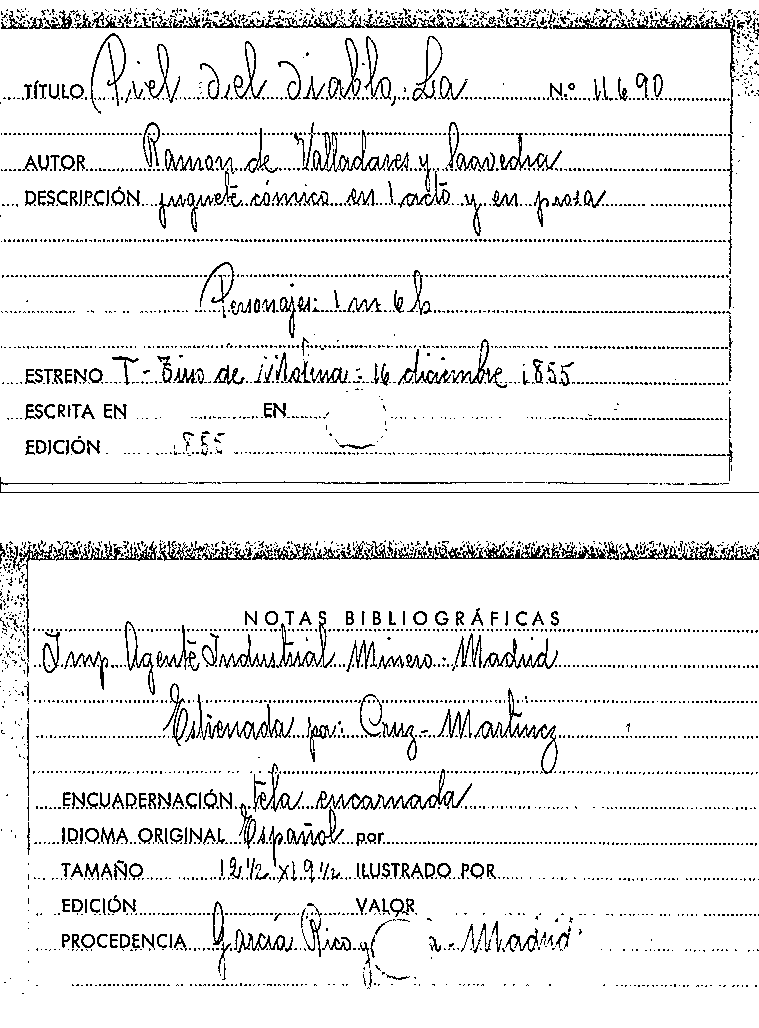 TÍTULO Piel del diablo, La N.º 11690
AUTOR Ramon de Valladares y Saavedra
DESCRIPCIÓN juguete cómico en 1 acto y en prosa
Personajes: 1 m 6 h
ESTRENO T- Tirso de Molina = 16 diciembre 1855
ESCRITA EN EN
EDICIÓN 1855
NOTAS BIBLIOGRÁFICAS
Imp. Agente Industrial Minero = Madrid
Estrenada por: Cruz - Martinez
ENCUADERNACIÓN tela encarnada
IDIOMA ORIGINAL Español por
TAMAÑO 12 1/2 x 19 1/2 ILUSTRADO POR
EDICIÓN VALOR
PROCEDENCIA García Rico y - Madrid